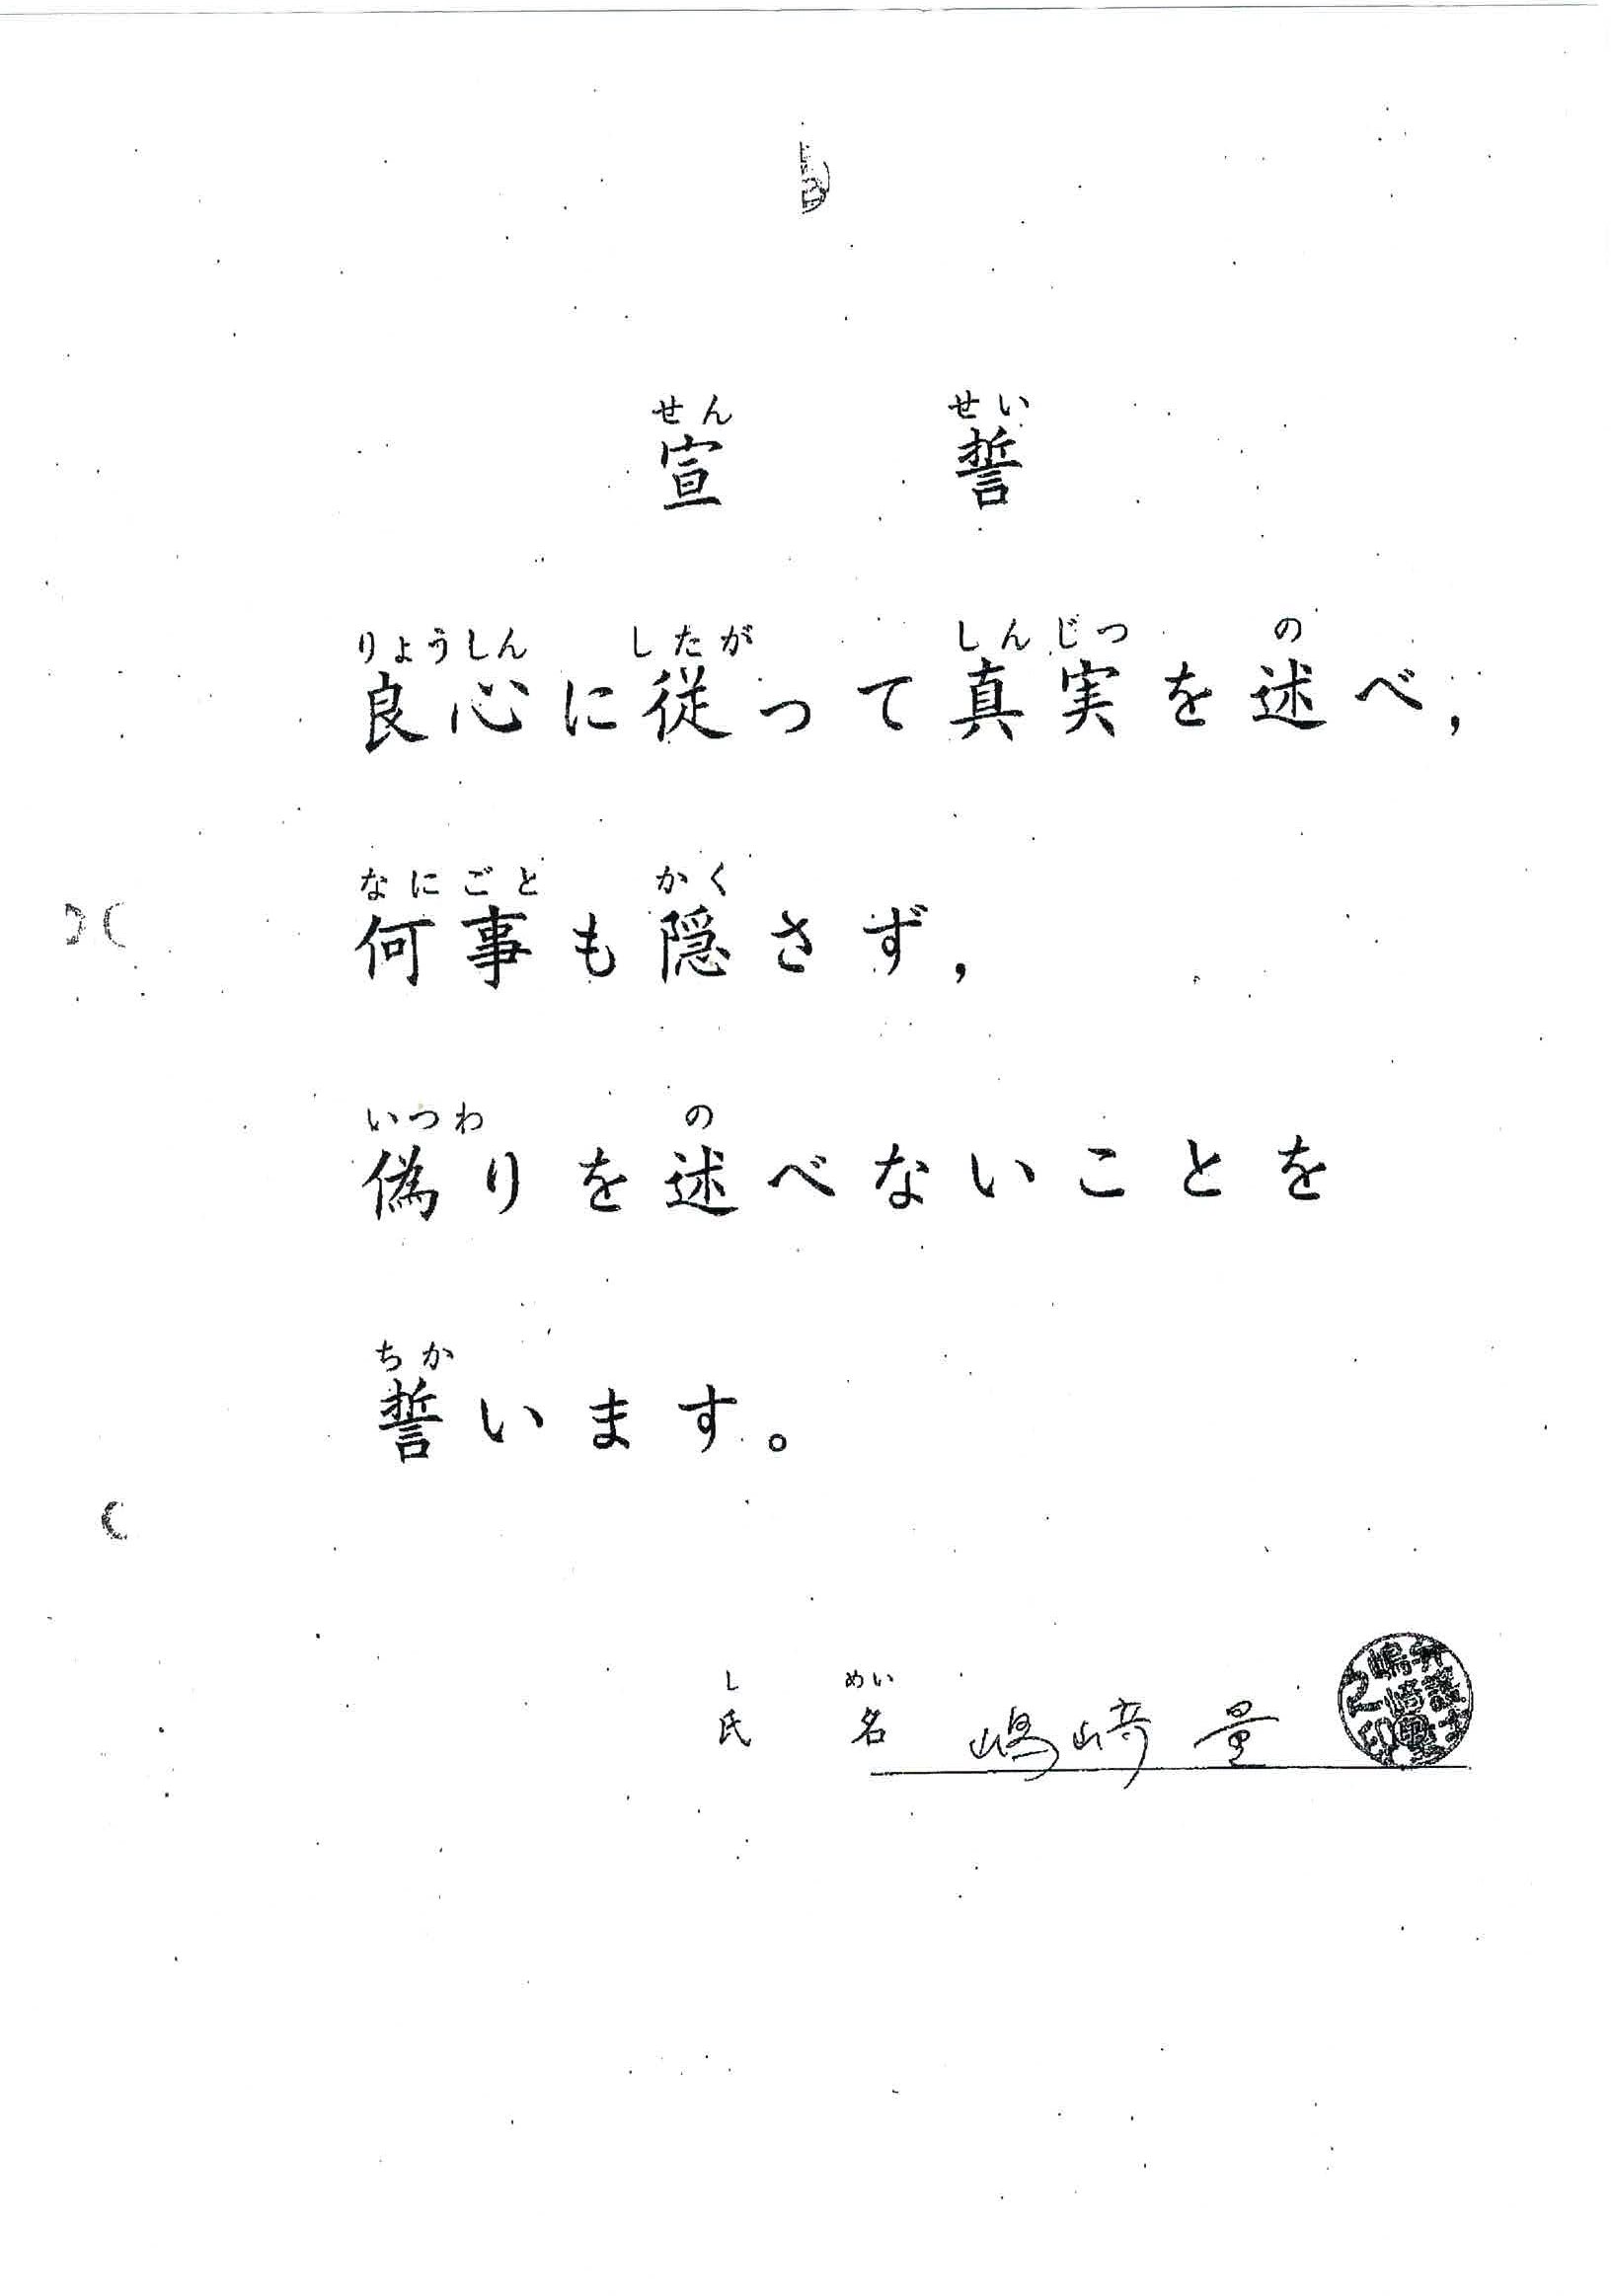 せん せい
宣 誓
りょうしん したが しんじつ の
良心に従って真実を述べ,
なにごと かく
何事も隠さず,
いつわ の
偽りを述べないことを
ちか
誓います。
し めい
氏 名 嶋﨑 量